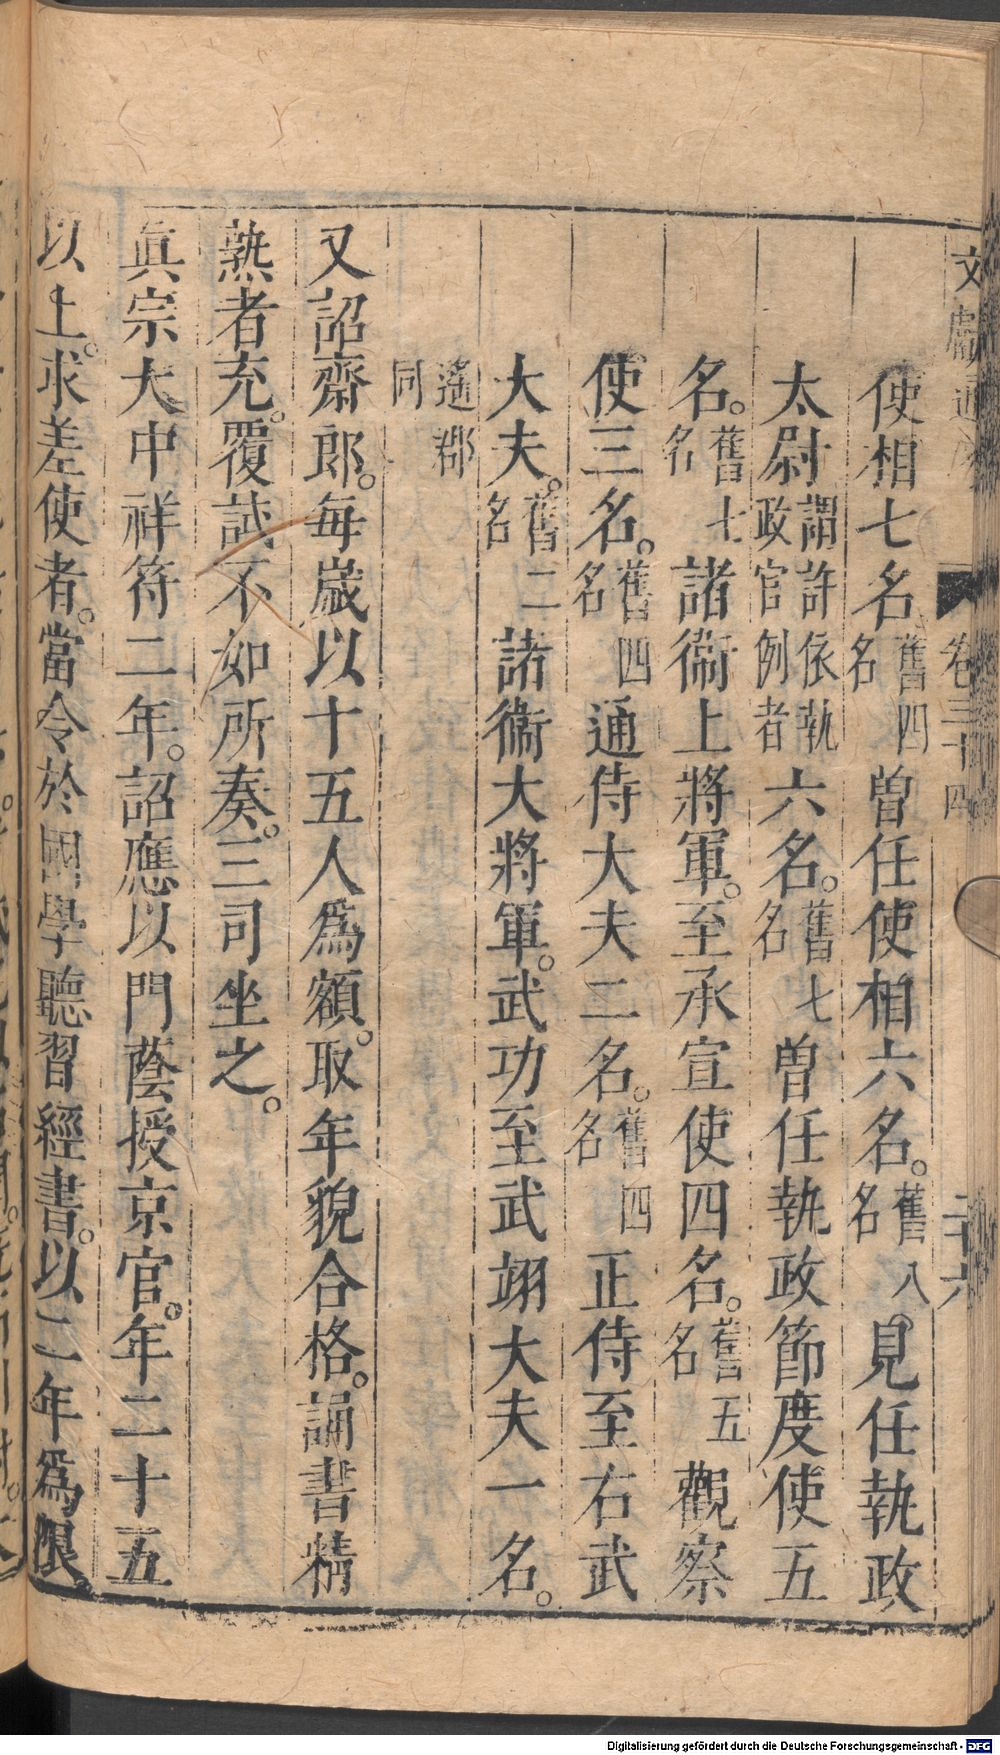 文獻通考 卷三十四 二十六
使相七名舊四名曾任使相六名。舊八名見任執政
太尉謂許依執政官例者六名。舊七名曾任執政節度使五
名。舊七名諸衞上將軍。至承宣使四名。舊五名觀察
使三名。舊四名通侍大夫二名。舊四名正侍至右武
大夫。舊二名諸衞大將軍。武功至武翊大夫一名。
遙郡同
又詔齋郎。每歲以十五人爲額。取年貌合格。誦書精
熟者充。覆試不如所奏。三司坐之。
眞宗大中祥符二年。詔應以門蔭授京官。年二十五
以上。求差使者。當令於國學聽習經書。以二年爲限。
Digitalisierung gefördert durch die Deutsche Forschungsgemeinschaft - DFG